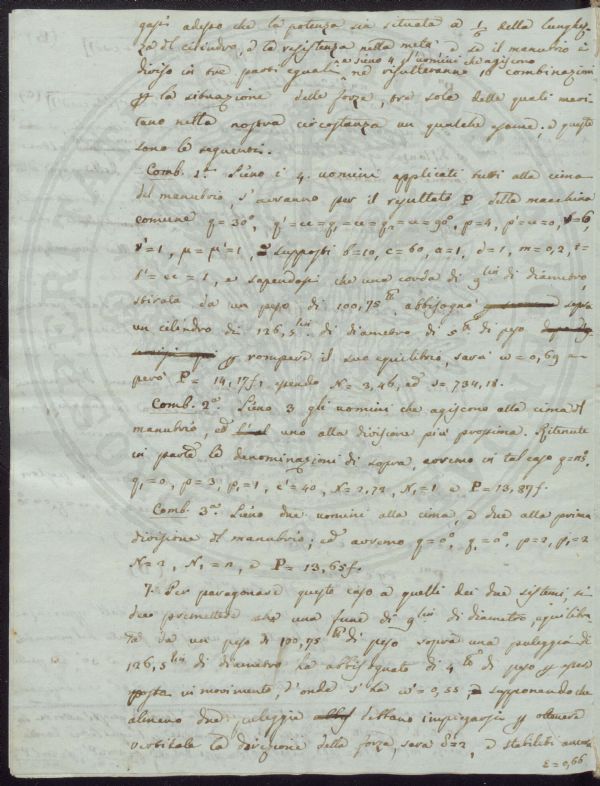 gasi adesso che la potenza sia situata a 1/5 della lunghez-
za del cilindro, e la resistenza nella metà, e se il manubrio è
e sieno 4 gl'uomini che agiscono
diviso in tre parti eguali ne risulteranno 10 combinazioni
la situazione delle forze, tre sole delle quali meri-
tano nella nostra circostanza un qualche esame; e queste
sono le seguenti.
Comb. 1ª. Sieno i 4. uomini applicati tutti alla cima
del manubrio, s'avranno per il risultato P della macchina
comune q = 30°, = 90°, p=4, =0, =6,
=1, μ = μ' = 1, supposti b=10, c=60, a=1, d=1, m=0,2,
= 1, e sapendosi che una corda di 9 lin di diametro,
stirata da un peso di 100,75 abbisogna sopra
un cilindro di 126,5 lin di diametro di 5 di peso
rompere il suo equilibrio, sarà w = 0,69 e
però P = 14,17f, essendo N = 3,46, ed s = 734,18.
Comb. 2ª. Sieno 3 gli uomini che agiscono alla cima del
manubrio, ed uno alla divisione più prossima. Ritenute
in parte le denominazioni di sopra, avremo in tal caso
q₁=0, p=3, p₁=1, c'=40, N=2,72, N₁=1 e P=13,87f.
Comb. 3ª. Sieno due uomini alla cima, e due alla prima
divisione del manubrio; ed avremo q=0°, q₁=0°, p=2, p₁=2
N=2, N₁= e P= 13,65f.
7. Per paragonare questo caso a quelli dei due sistemi, si
deve premettere che una fune di 9 lin di diametro, equilibra-
ta da un peso di 100,75 di peso sopra una puleggia di
126,5 lin di diametro ha abbisognato di 4 di peso
posta in movimento, d'onde s'ha w' = 0,55, supponendo che
almeno due puleggie debbano impiegarsi ottenere
verticale la direzione della forza, sarà δ=2, e stabiliti ancora
ε = 0,66